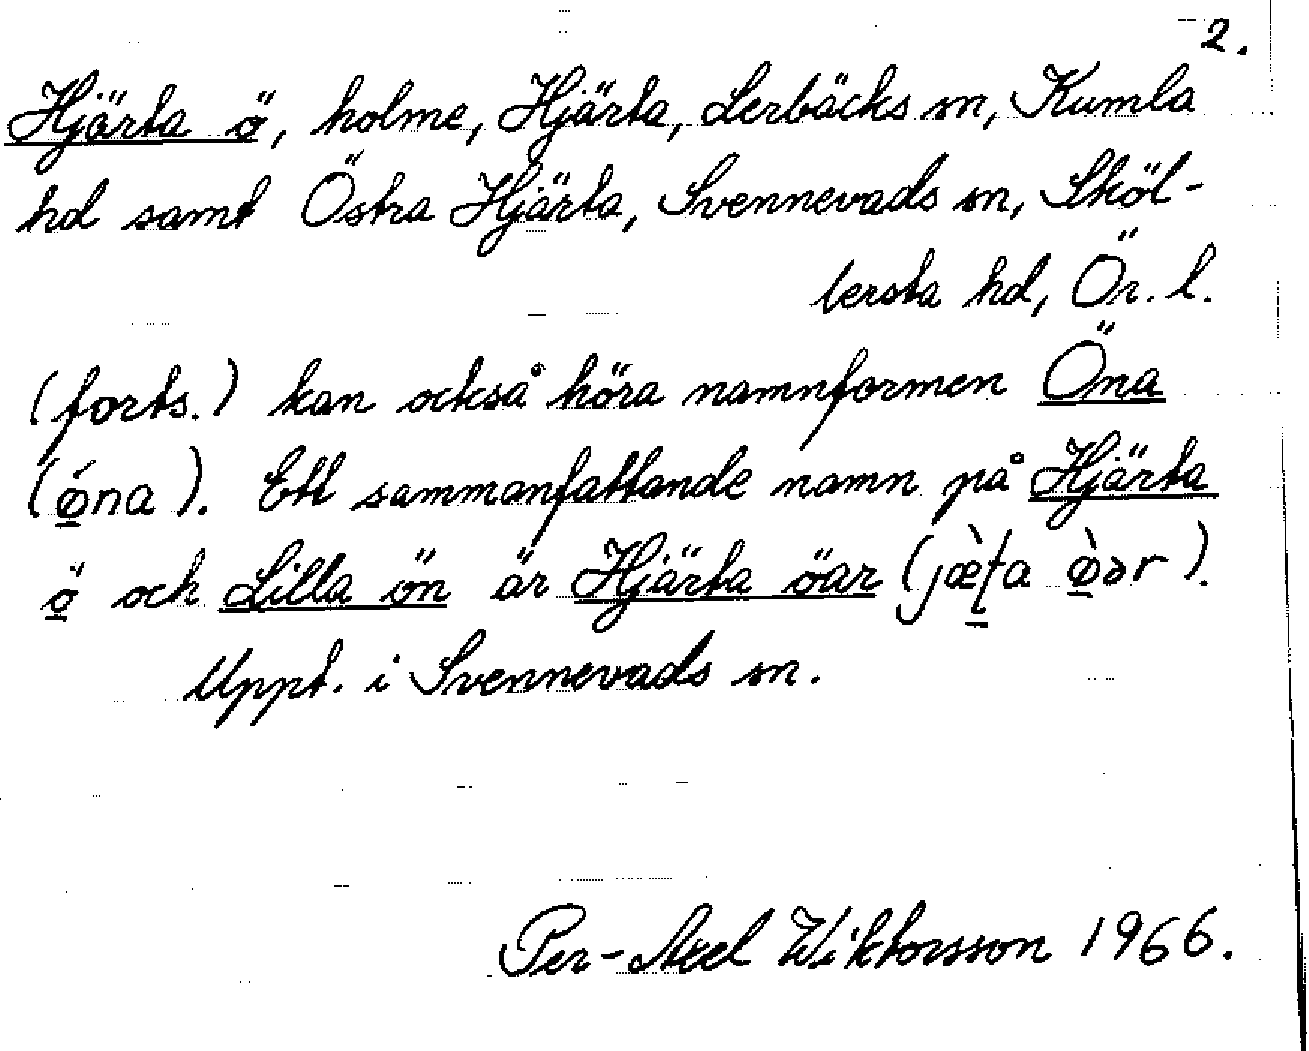 2.
Hjärta ö, holme, Hjärta, Lerbäcks sn, Kumla
hd samt Östra Hjärta, Svennevads sn, Sköl-
lersta hd, Ör. l.
(forts.) kan också höra namnformen Öna
(ǿ̱na). Ett sammanfattande namn på Hjärta
ö och Lilla ön är Hjärta öar (jæ̱̀ʈa ø̱̀ər).
Uppt. i Svennevads sn.
Per-Axel Wiktorsson 1966.